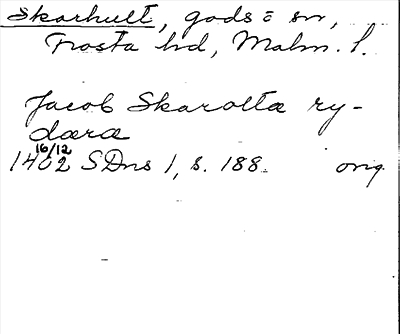 Skarhult, gods o sn,
Frosta hd, Malm. l.
Jacob Skarolta ry-
dara
16/12
1402 SDns 1, s. 188. orig.